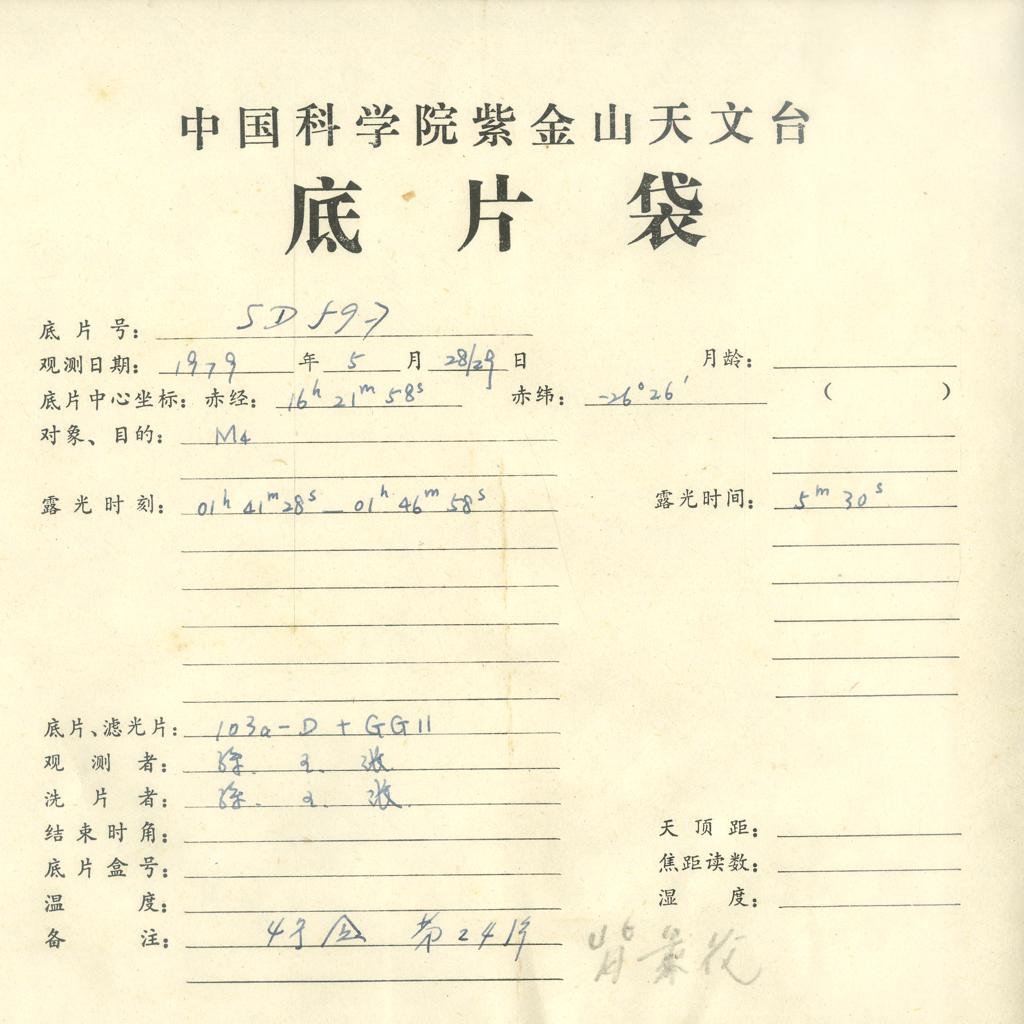 中国科学院紫金山天文台
底片袋
底片号: SD597
观测日期: 1979年5月28/29日 月龄:
底片中心坐标: 赤经: 16h 21m 58s 赤纬: -26°26′ ( )
对象、目的: M4
露光时刻: 01h 41m 28s — 01h 46m 58s 露光时间: 5m 30s
底片、滤光片: 103a-D + GG11
观测者: 徐. 王. 张.
洗片者: 徐. 王. 张.
结束时角: 天顶距:
底片盒号: 焦距读数:
温度: 湿度:
备注: 4号盒 第24片 背景灰